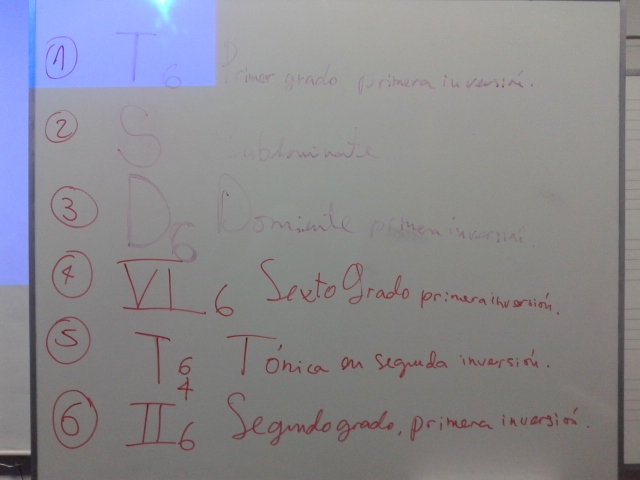 1 T6 Primer grado primera inversión.
2 S Subdominante
3 D6 Dominante primera inversión.
4 VI6 Sexto Grado primera inversión.
5 T64 Tónica en segunda inversión.
6 II6 Segundo grado, primera inversión.